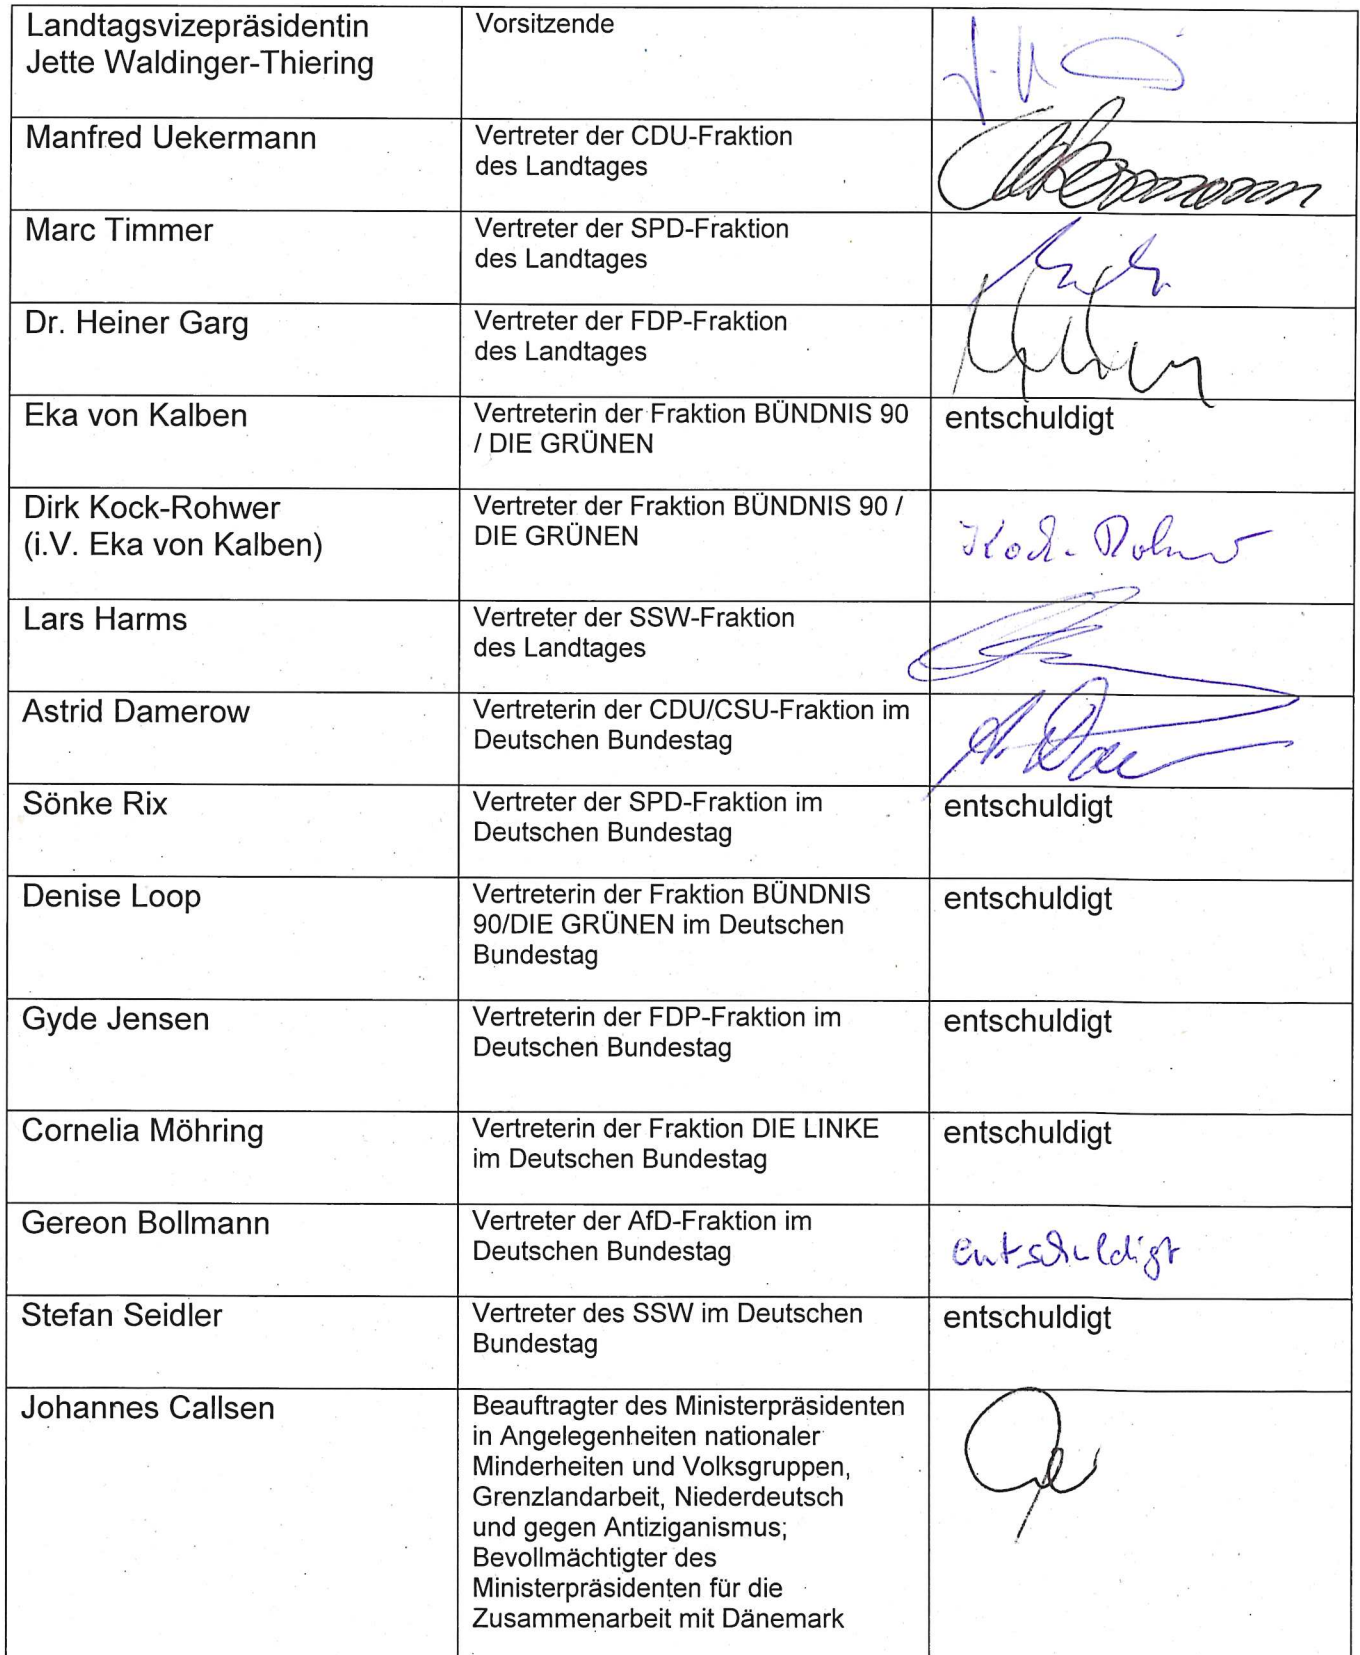 Landtagsvizepräsidentin
Jette Waldinger-Thiering
Vorsitzende
Manfred Uekermann
Vertreter der CDU-Fraktion
des Landtages
Marc Timmer
Vertreter der SPD-Fraktion
des Landtages
Dr. Heiner Garg
Vertreter der FDP-Fraktion
des Landtages
Eka von Kalben
Vertreterin der Fraktion BÜNDNIS 90
/ DIE GRÜNEN
entschuldigt
Dirk Kock-Rohwer
(i.V. Eka von Kalben)
Vertreter der Fraktion BÜNDNIS 90 /
DIE GRÜNEN
Kock-Rohwer
Lars Harms
Vertreter der SSW-Fraktion
des Landtages
Astrid Damerow
Vertreterin der CDU/CSU-Fraktion im
Deutschen Bundestag
Sönke Rix
Vertreter der SPD-Fraktion im
Deutschen Bundestag
entschuldigt
Denise Loop
Vertreterin der Fraktion BÜNDNIS
90/DIE GRÜNEN im Deutschen
Bundestag
entschuldigt
Gyde Jensen
Vertreterin der FDP-Fraktion im
Deutschen Bundestag
entschuldigt
Cornelia Möhring
Vertreterin der Fraktion DIE LINKE
im Deutschen Bundestag
entschuldigt
Gereon Bollmann
Vertreter der AfD-Fraktion im
Deutschen Bundestag
entschuldigt
Stefan Seidler
Vertreter des SSW im Deutschen
Bundestag
entschuldigt
Johannes Callsen
Beauftragter des Ministerpräsidenten
in Angelegenheiten nationaler
Minderheiten und Volksgruppen,
Grenzlandarbeit, Niederdeutsch
und gegen Antiziganismus;
Bevollmächtigter des
Ministerpräsidenten für die
Zusammenarbeit mit Dänemark